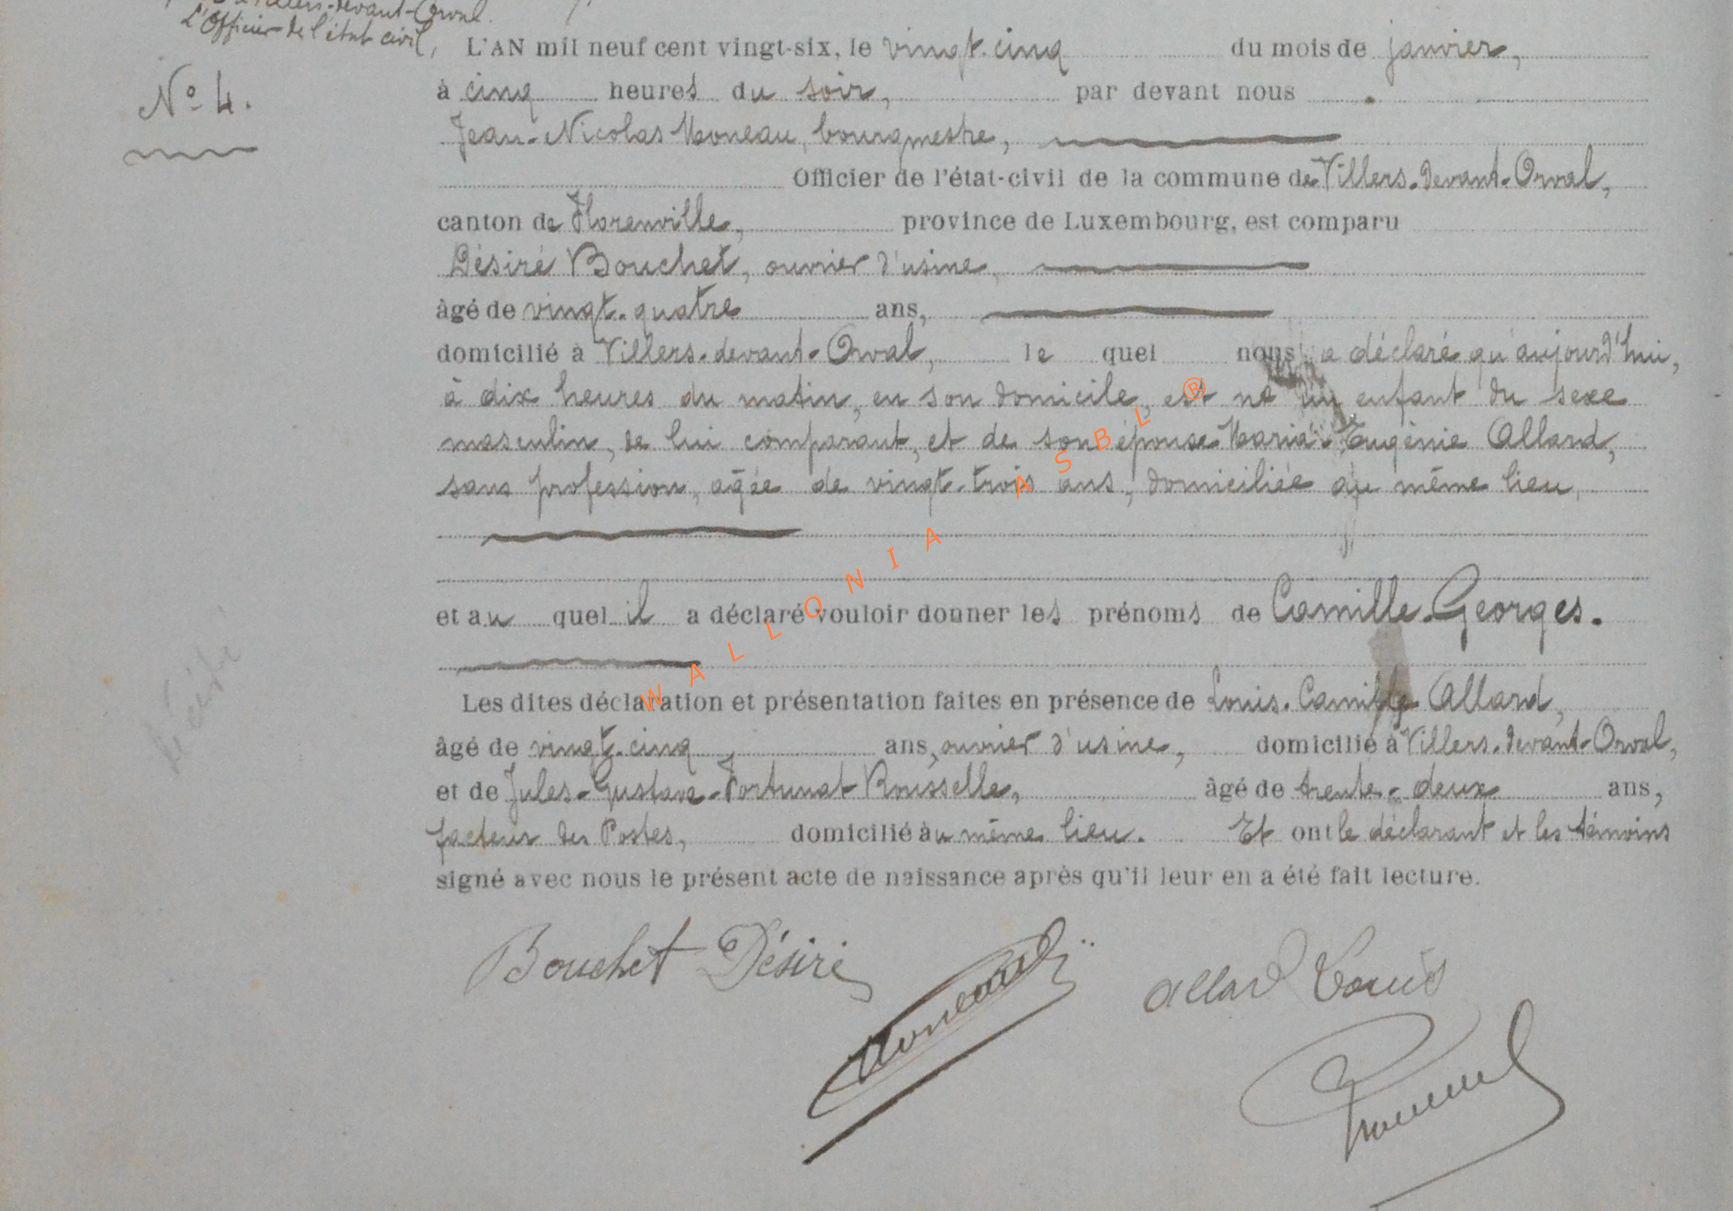 Villers-devant-Orval.
L'Officier de l'état civil,
N° 4.
L'AN mil neuf cent vingt-six, le vingt-cinq du mois de janvier,
à cinq heures du soir, par devant nous
Jean-Nicolas Moneau, bourgmestre,
Officier de l'état-civil de la commune de Villers-devant-Orval,
canton de Florenville, province de Luxembourg, est comparu
Désiré Bouchet, ouvrier d'usine,
âgé de vingt-quatre ans,
domicilié à Villers-devant-Orval, le quel nous a déclaré qu'aujourd'hui,
à dix heures du matin, en son domicile, est né un enfant du sexe
masculin, de lui comparant, et de son épouse Maria-Eugénie Allard,
sans profession, âgée de vingt-trois ans, domiciliée au même lieu,
et au quel il a déclaré vouloir donner les prénoms de Camille-Georges.
Les dites déclaration et présentation faites en présence de Louis-Camille Allard,
âgé de vingt-cinq ans, ouvrier d'usine, domicilié à Villers-devant-Orval,
et de Jules-Gustave-Fortunat Rousselle, âgé de trente-deux ans,
facteur des Postes, domicilié au même lieu. Et ont le déclarant et les témoins
signé avec nous le présent acte de naissance après qu'il leur en a été fait lecture.
Bouchet Désiré
Moneau
Allard Louis
WALLONIA ASBL ®